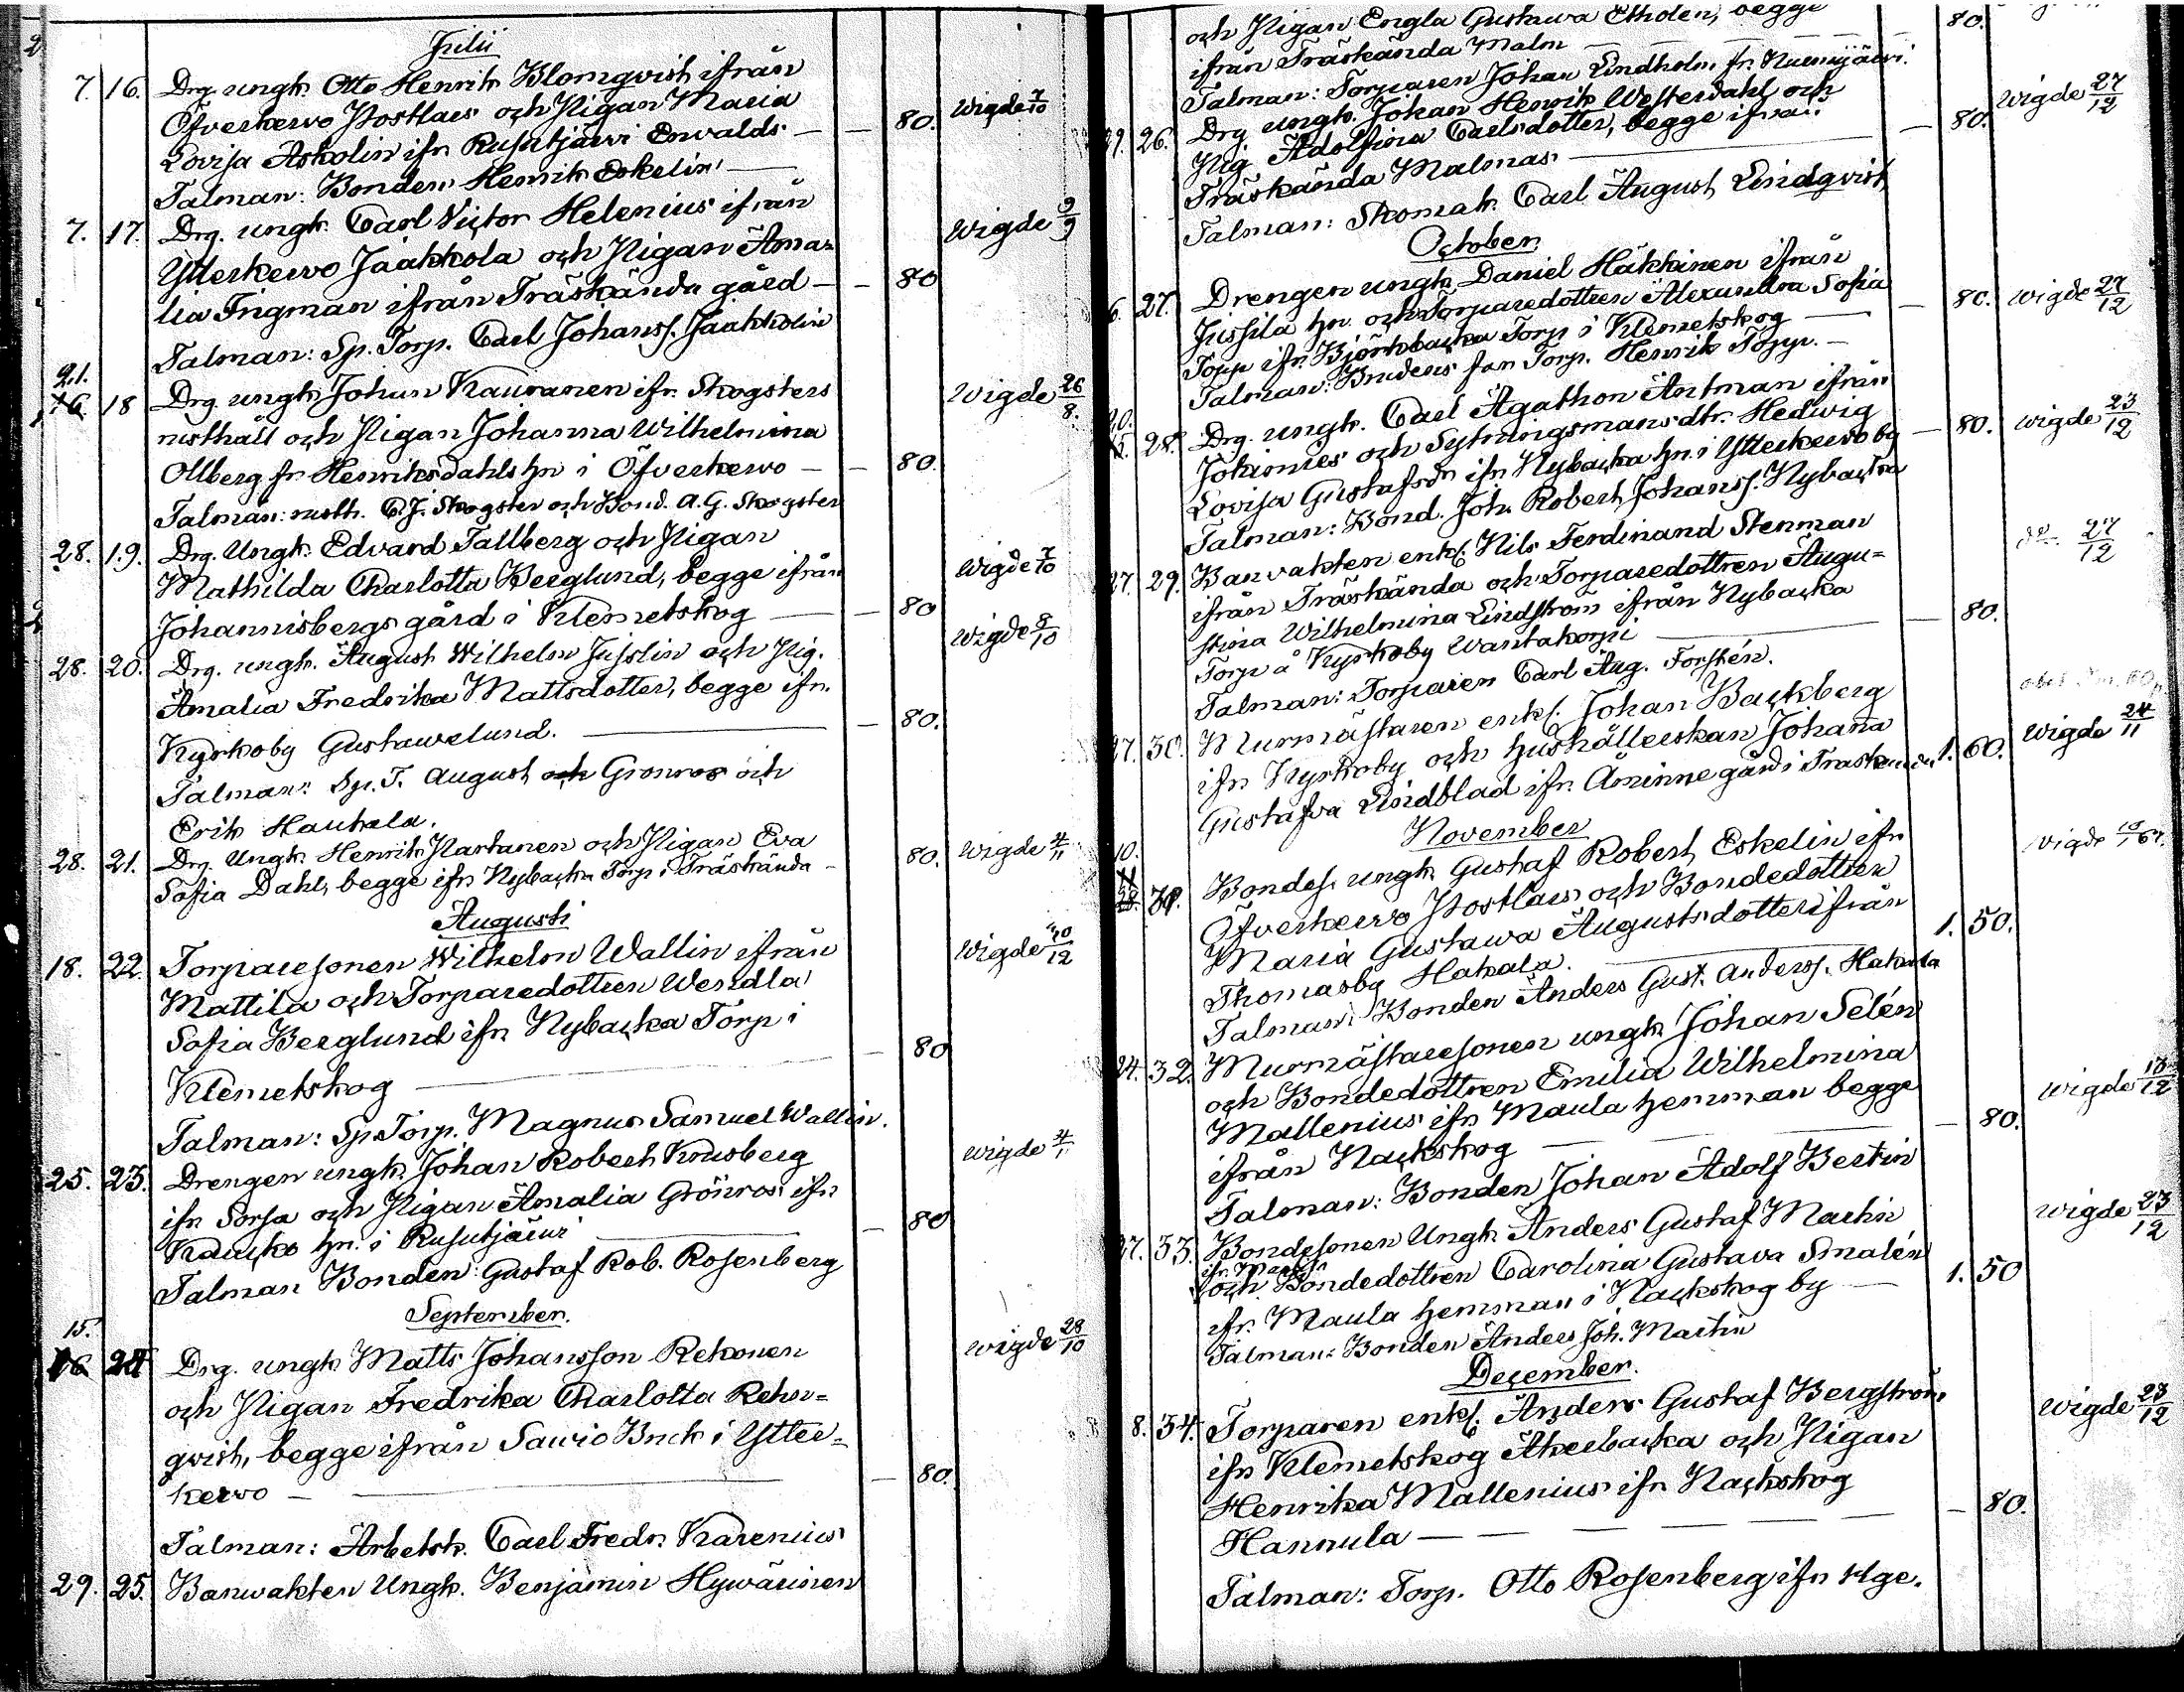 Julii
7. 16. Drg. ungk. Otto Henrik Blomqvist ifrån
Öfverkervo Postlars och Pigan Maria — 80. Wigde 7/10
Lovisa Askolin ifn Rusutjärvi Envalds —
Talman: Bonden Henrik Eskelin —
7. 17. Drg. ungk. Carl Victor Helenius ifrån Wigde 9/9
Ytterkervo Jaakkola och Pigan Ama-
lia Frigman ifrån Träskända gård — — 80
Talman: Sp. Torp. Carl Johanss. Jaakkolin
21.
16. 18 Drg. ungk. Johan Kauranen ifn. Skogsters Wigde 26/8.
rusthåll och Pigan Johanna Wilhelmina
Ollberg fr. Henriksdahls hn i Öfverkervo — — 80.
Talman: rusth. C. J. Skogster och Bond. A. G. Skogster
28. 19. Drg. Ungk. Edvard Tallberg och Pigan Wigde 7/10
Mathilda Charlotta Berglund, begge ifrån
Johannisbergs gård i Klemetskog — — 80
28. 20. Drg. ungk. August Wilhelm Juslin och Pig. Wigde 8/10
Amalia Fredrika Mattsdotter, begge ifn.
Kyrkoby Gustawelund. — — 80.
Talman: Sp. T. August och Gronroos och
Erik Haukala.
28. 21. Drg. Ungk. Henrik Partanen och Pigan Eva 80. Wigde 4/11
Sofia Dahl, begge ifn Nybacka Torp i Träskända —
Augusti
18. 22. Torparesonen Wilhelm Wallin ifrån Wigde 30/12
Mattila och Torparedottren Wendla
Sofia Berglund ifn Nybacka Torp i
Klemetskog — — 80
Talman: Sp. Torp. Magnus Samuel Wallin.
25. 23. Drengen ungk. Johan Robert Krusberg Wigde 4/11
ifn Sorsa och Pigan Amalia Grönroos ifn
Kaucko hn. i Rusutjärvi — — 80
Talman Bonden: Gustaf Rob. Rosenberg
September.
15.
16 24 Drg. ungk. Matts Johansson Rekonen Wigde 28/10
och Pigan Fredrika Charlotta Rehn-
qvist, begge ifrån Sawio Bruk i Ytter-
kervo — — 80.
Talman: Arbetsk. Carl Fredr. Karenius
29. 25. Banwakten Ungk. Benjamin Hywärinen
och Pigan Engla Gustawa Etholen, begge 80.
ifrån Träskända Malm —
Talman: Torparen Johan Lindholm fr. Nurmijärvi.
29. 26. Drg. ungk. Johan Henrik Westerdahl och — 80. Wigde 27/12
Pig. Adolfina Carlsdotter, begge ifrån
Träskända Malmas —
Talman: Skomak. Carl August Lindqvist
October
6. 27. Drengen ungk. Daniel Häkkinen ifrån
Jussila hn. och Torparedottren Alexandra Sofia — 80. Wigde 27/12
Topp ifn. Björkbacka Torp i Klemetskog —
Talman: Brudens far Torp. Henrik Topp. —
20.
28. Drg. ungk. Carl Agathon Antman ifrån
Jokimies och Sytningsmansdtr. Hedwig — 80. Wigde 23/12
Lovisa Gustafsdr ifn Nybacka hn. i Ytterkervo by
Talman: Bond. Joh. Robert Johanss. Nybacka
27. 29. Banvakten enkl. Nils Ferdinand Stenman 27/12
ifrån Träskända och Torparedottren Augu-
stina Wilhelmina Lindstrom ifrån Nybacka
Torp å Kyrkoby Wantakorpi — — 80.
Talman: Torparen Carl Aug. Forstén.
27. 30. Murmästaren enkl. Johan Backberg
ifn Kyrkoby och hushållerskan Johana Wigde 24/11
Gustafva Lindblad ifr. Åminne gård i Träskända 1. 60.
November
10.
31. Bondes. ungk. Gustaf Robert Eskelin ifn
Öfverkervo Postlars och Bondedottren
Maria Gustawa Augustsdotter ifrån 1. 50.
Thomasby Hakala.
Talman: Bonden Anders Gust. Anderss. Hakala
24. 32. Murmästaresonen ungk. Johan Selén
och Bondedottren Emilia Wilhelmina
Mallenius ifn Maula hemman begge — 80. Wigde 13/12
ifrån Nackskog —
Talman: Bonden Johan Adolf Bertin
27. 33. Bondesonen Ungk. Anders Gustaf Martin Wigde 23/12
och Bondedottren Carolina Gustava Smalén 1. 50
ifr. Maula hemman i Nackskog by —
Talman: Bonden Anders Joh. Martin
December.
8. 34. Torparen enkl. Anders Gustaf Bergström Wigde 23/12
ifn Klemetskog Åkerbacka och Pigan
Henrika Mallenius ifn Nackskog
Hannula — — 80.
Talman: Torp. Otto Rosenberg ifn Hge.